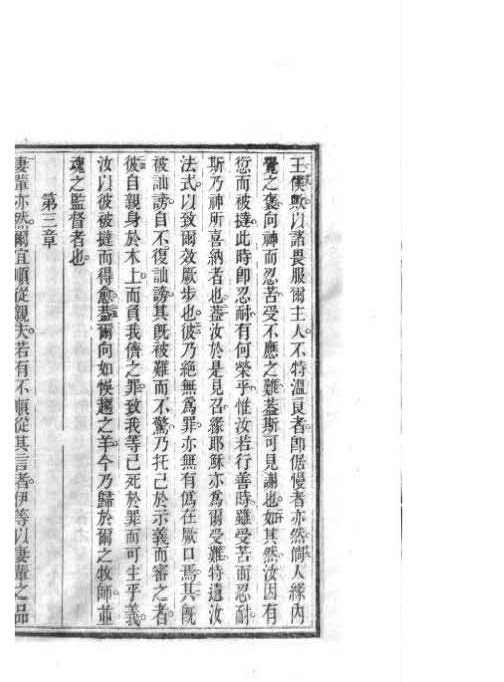 王僕歟以諸畏服爾主人不特溫良者卽倨慢者亦然倘人緣內
覺之褒向神而忍苦受不應之難葢斯可見謝也如其然汝因有
愆而被撻此時卽忍耐有何榮乎惟汝若行善時雖受苦而忍耐
斯乃神所喜納者也葢汝於是見召緣耶穌亦爲爾受難特遺汝
法式以致爾效厥步也彼乃絕無爲罪亦無有僞在厥口焉其旣
被訕謗自不復訕謗其旣被難而不驚乃托己於示義而審之者
彼自親身於木上而負我儕之罪致我等已死於罪而可生乎義
汝以彼被撻而得愈葢爾向如悞趨之羊今乃歸於爾之牧師並
魂之監督者也
第三章
妻輩亦然爾宜順從親夫若有不順從其言者伊等以妻輩之品